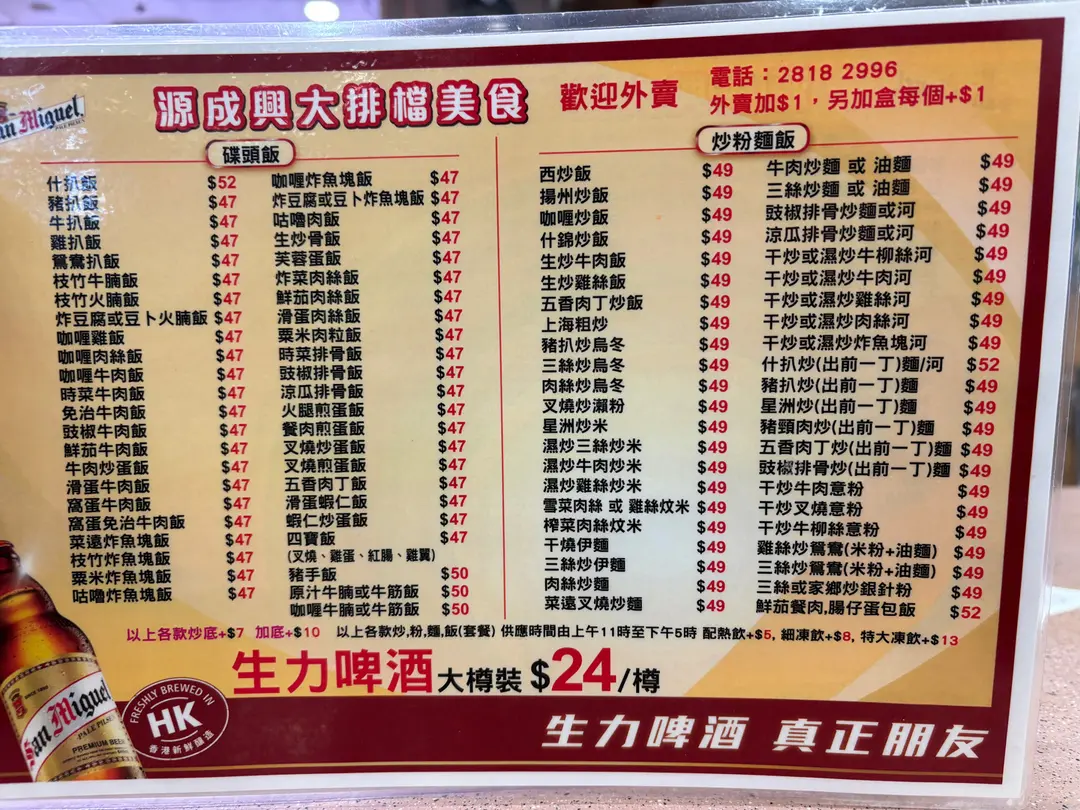 San Miguel
源成興大排檔美食
歡迎外賣
電話：2818 2996
外賣加$1，另加盒每個+$1
碟頭飯
什扒飯 $52
豬扒飯 $47
牛扒飯 $47
雞扒飯 $47
鴛鴦扒飯 $47
枝竹牛腩飯 $47
枝竹火腩飯 $47
炸豆腐或豆卜火腩飯 $47
咖喱雞飯 $47
咖喱肉絲飯 $47
咖喱牛肉飯 $47
時菜牛肉飯 $47
免治牛肉飯 $47
豉椒牛肉飯 $47
鮮茄牛肉飯 $47
牛肉炒蛋飯 $47
滑蛋牛肉飯 $47
窩蛋牛肉飯 $47
窩蛋免治牛肉飯 $47
菜遠炸魚塊飯 $47
枝竹炸魚塊飯 $47
粟米炸魚塊飯 $47
咕嚕炸魚塊飯 $47
咖喱炸魚塊飯 $47
炸豆腐或豆卜炸魚塊飯 $47
咕嚕肉飯 $47
生炒骨飯 $47
芙蓉蛋飯 $47
炸菜肉絲飯 $47
鮮茄肉絲飯 $47
滑蛋肉絲飯 $47
粟米肉粒飯 $47
時菜排骨飯 $47
豉椒排骨飯 $47
涼瓜排骨飯 $47
火腿煎蛋飯 $47
餐肉煎蛋飯 $47
叉燒炒蛋飯 $47
叉燒煎蛋飯 $47
五香肉丁飯 $47
滑蛋蝦仁飯 $47
蝦仁炒蛋飯 $47
四寶飯 $47
(叉燒、雞蛋、紅腸、雞翼)
豬手飯 $50
原汁牛腩或牛筋飯 $50
咖喱牛腩或牛筋飯 $50
炒粉麵飯
西炒飯 $49
揚州炒飯 $49
咖喱炒飯 $49
什錦炒飯 $49
生炒牛肉飯 $49
生炒雞絲飯 $49
五香肉丁炒飯 $49
上海粗炒 $49
豬扒炒烏冬 $49
三絲炒烏冬 $49
肉絲炒烏冬 $49
叉燒炒瀨粉 $49
星洲炒米 $49
濕炒三絲炒米 $49
濕炒牛肉炒米 $49
濕炒雞絲炒米 $49
雪菜肉絲 或 雞絲炆米 $49
榨菜肉絲炆米 $49
干燒伊麵 $49
三絲炒伊麵 $49
肉絲炒麵 $49
菜遠叉燒炒麵 $49
牛肉炒麵 或 油麵 $49
三絲炒麵 或 油麵 $49
豉椒排骨炒麵或河 $49
涼瓜排骨炒麵或河 $49
干炒或濕炒牛柳絲河 $49
干炒或濕炒牛肉河 $49
干炒或濕炒雞絲河 $49
干炒或濕炒肉絲河 $49
干炒或濕炒炸魚塊河 $49
什扒炒(出前一丁)麵/河 $52
豬扒炒(出前一丁)麵 $49
星洲炒(出前一丁)麵 $49
豬頸肉炒(出前一丁)麵 $49
五香肉丁炒(出前一丁)麵 $49
豉椒排骨炒(出前一丁)麵 $49
干炒牛肉意粉 $49
干炒叉燒意粉 $49
干炒牛柳絲意粉 $49
雞絲炒鴛鴦(米粉+油麵) $49
三絲炒鴛鴦(米粉+油麵) $49
三絲或家鄉炒銀針粉 $49
鮮茄餐肉,腸仔蛋包飯 $52
以上各款炒底+$7 加底+$10 以上各款炒,粉,麵,飯(套餐) 供應時間由上午11時至下午5時 配熱飲+$5, 細凍飲+$8, 特大凍飲+$13
生力啤酒大樽裝 $24/樽
FRESHLY BREWED IN
HK
香港新鮮釀造
San Miguel
PALE PILSEN
PREMIUM BEER
生力啤酒 真正朋友